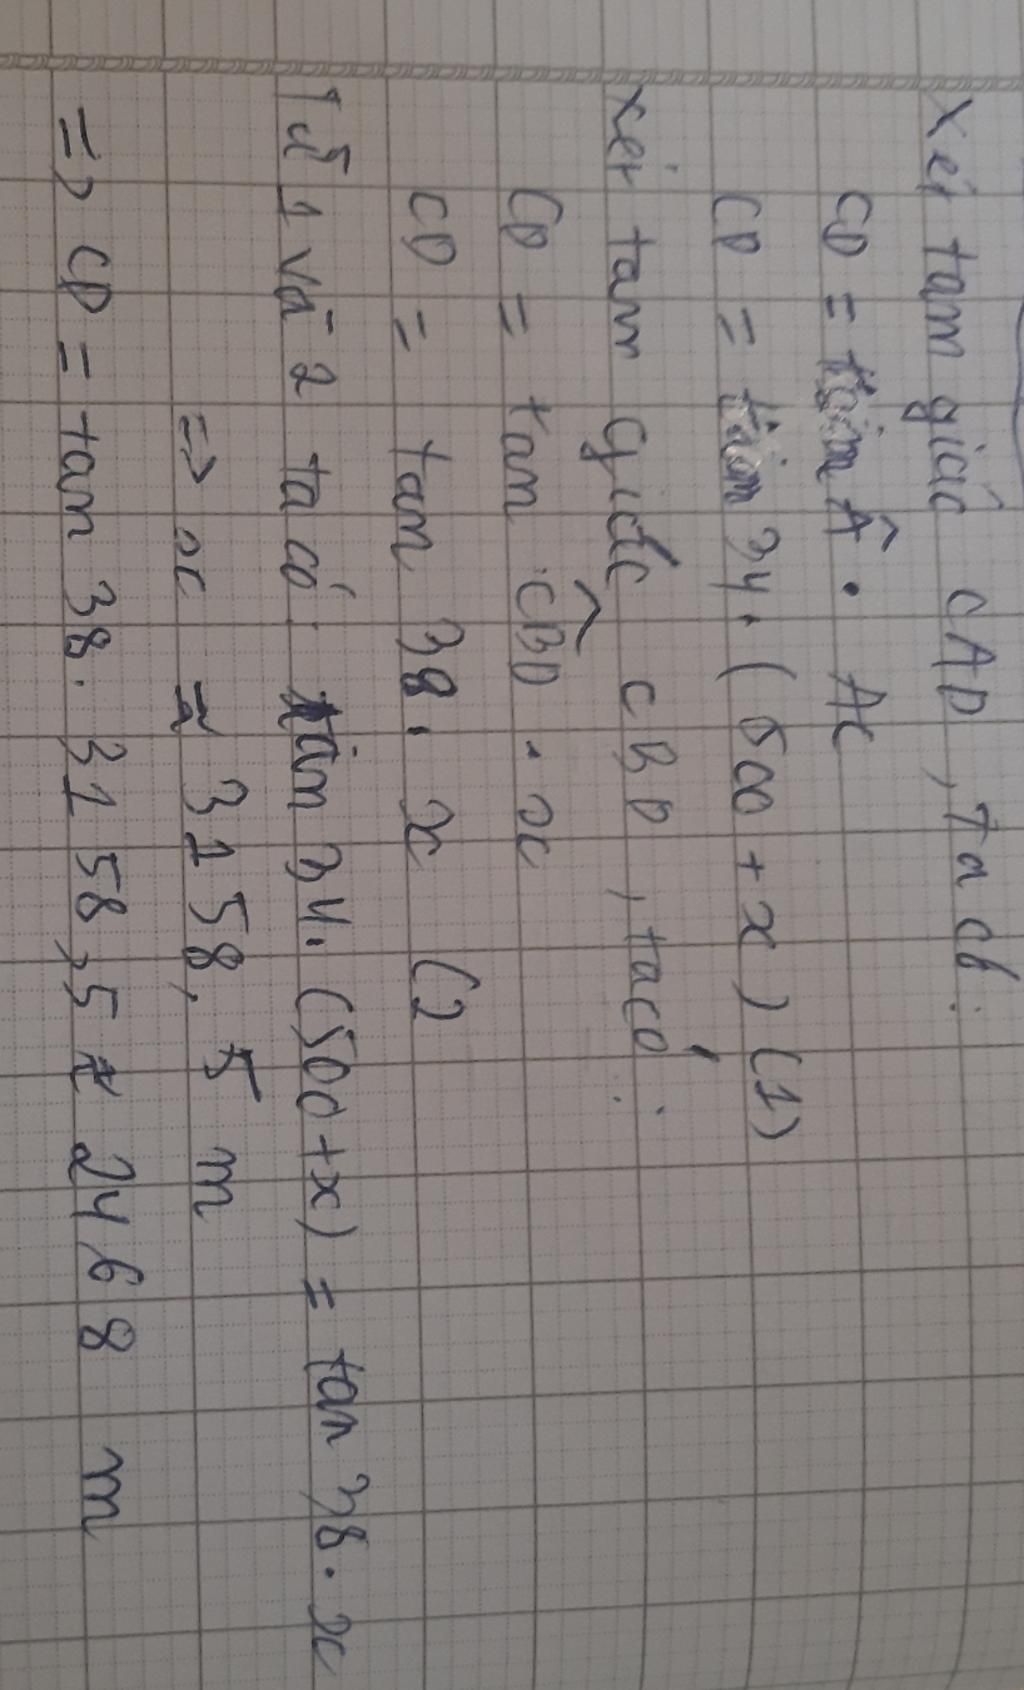 Xét tam giác CAD, ta có:
CD = tan Â . AC
CD = tan 34. (500 + x) (1)
xét tam giác CBD, ta có:
CD = tan CBD . x
CD = tan 38. x (2
Từ 1 và 2 ta có: tan 34. (500 + x) = tan 38. x
=> x ≈ 3158,5 m
=> CD = tan 38. 3158,5 ≈ 2468 m